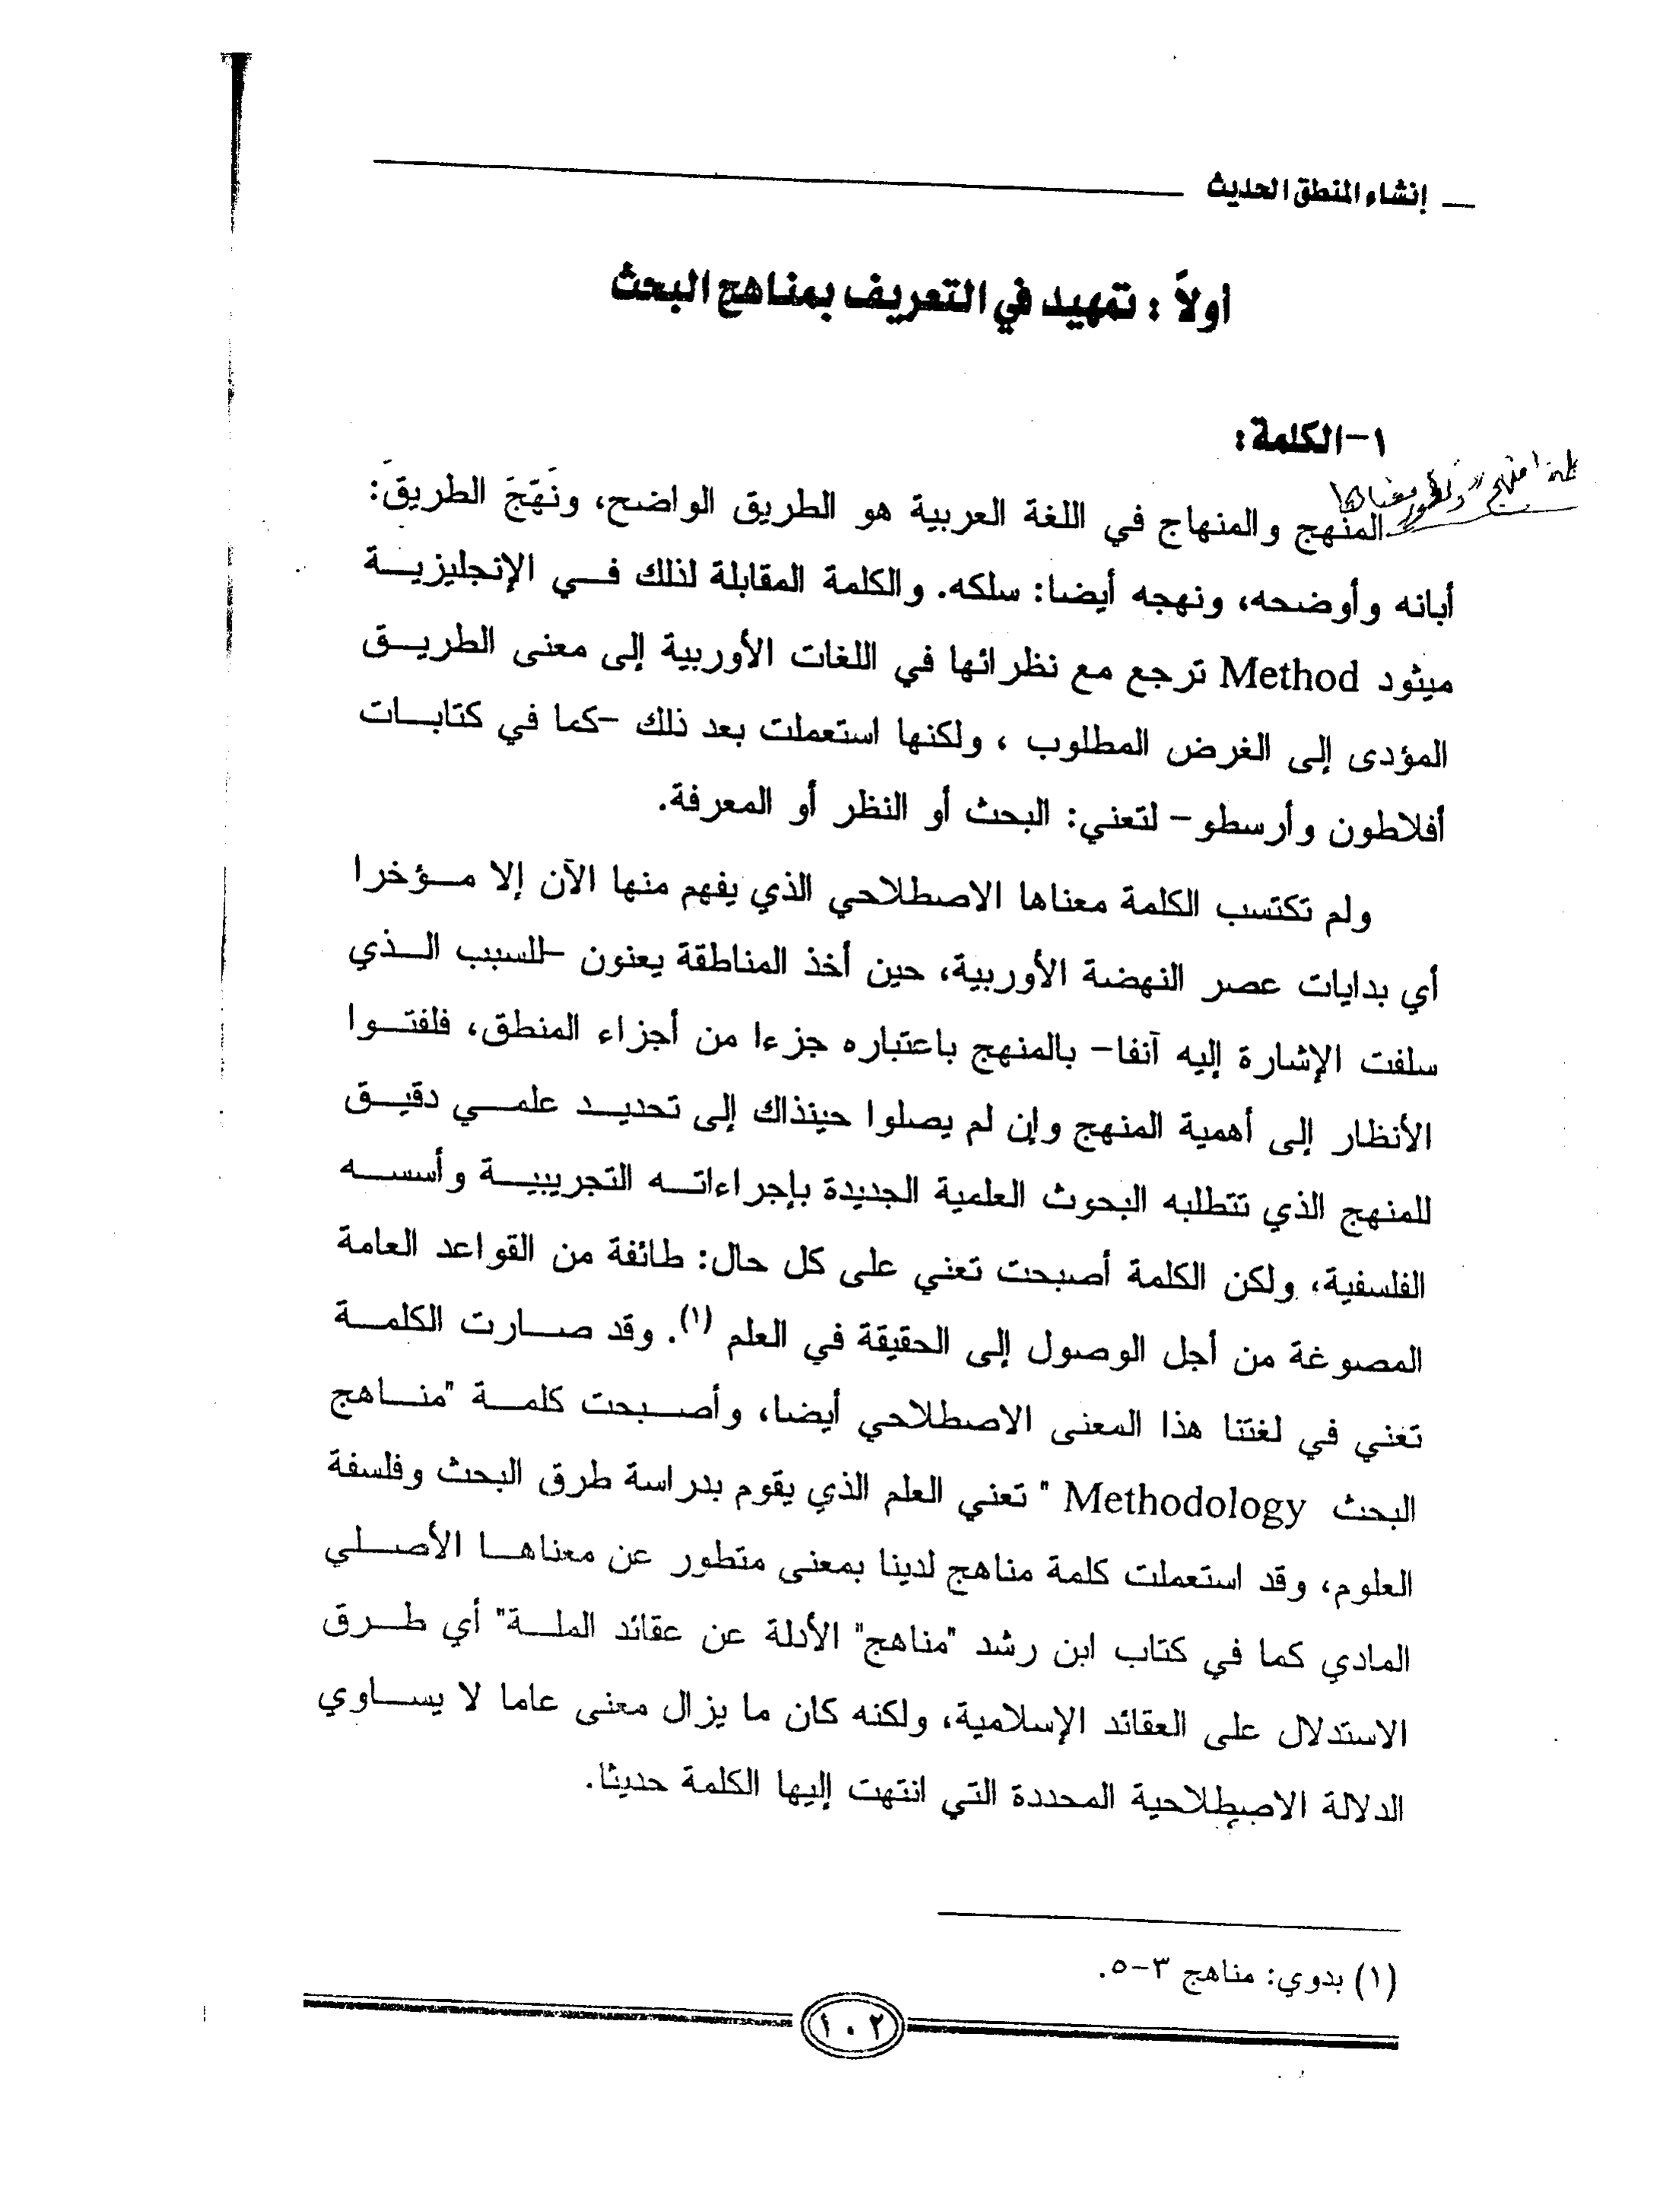 إنشاء المنطق الحديث
أولاً : تمهيد في التعريف بمناهج البحث
١-الكلمة:
المنهج والمنهاج في اللغة العربية هو الطريق الواضح، ونَهَجَ الطريقَ:
أبانه وأوضحه، ونهجه أيضا: سلكه. والكلمة المقابلة لذلك في الإنجليزية
ميثود Method ترجع مع نظرائها في اللغات الأوربية إلى معنى الطريق
المؤدى إلى الغرض المطلوب ، ولكنها استعملت بعد ذلك -كما في كتابات
أفلاطون وأرسطو- لتعني: البحث أو النظر أو المعرفة.
ولم تكتسب الكلمة معناها الاصطلاحي الذي يفهم منها الآن إلا مؤخرا
أي بدايات عصر النهضة الأوربية، حين أخذ المناطقة يعنون -للسبب الذي
سلفت الإشارة إليه آنفا- بالمنهج باعتباره جزءا من أجزاء المنطق، فلفتوا
الأنظار إلى أهمية المنهج وإن لم يصلوا حينذاك إلى تحديد علمي دقيق
للمنهج الذي تتطلبه البحوث العلمية الجديدة بإجراءاته التجريبية وأسسه
الفلسفية، ولكن الكلمة أصبحت تعني على كل حال: طائفة من القواعد العامة
المصوغة من أجل الوصول إلى الحقيقة في العلم (١). وقد صارت الكلمة
تعني في لغتنا هذا المعنى الاصطلاحي أيضا، وأصبحت كلمة "مناهج
البحث Methodology " تعني العلم الذي يقوم بدراسة طرق البحث وفلسفة
العلوم، وقد استعملت كلمة مناهج لدينا بمعنى متطور عن معناها الأصلي
المادي كما في كتاب ابن رشد "مناهج" الأدلة عن عقائد الملة" أي طرق
الاستدلال على العقائد الإسلامية، ولكنه كان ما يزال معنى عاما لا يساوي
الدلالة الاصطلاحية المحددة التي انتهت إليها الكلمة حديثا.
(١) بدوي: مناهج ٣-٥.
١٠٢